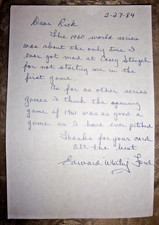 2-27-84
Dear Rick
The 1960 world series
was about the only time I
ever got mad at Casey Stengel
for not starting me in the
first game.
As for as other series
games I think the opening
game of 1961 was as good a
game as I have ever pitched
Thanks for your card
All the best
Edward Whitey Ford